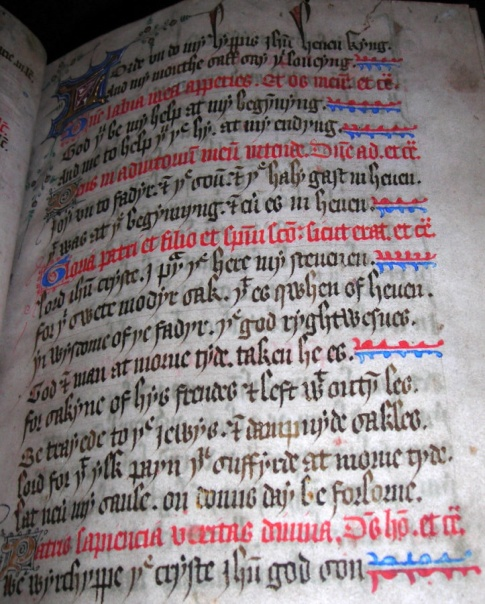 Lorde vn do my lyppis ihū heuen kyng.
And my mouthe sall say yi loueyng.
Dn̄e labia mea aperies. Et os meum. et cē.
God yu be my help at my begynnyng.
And me to help yt yu hy. at my endyng.
Deus in adiutorium meū intende. Dn̄e ad. et cē.
Joy vn to fadyr. & ye son. & ye haly gast in heuen.
yt was at ye begynnyng. & eu̅ es in heuen
Gloria patri et filio et spūi scō: sicut erat. et cē.
lord ihū cryste. I pray ye here my steuenen.
for yi swete modyr sak. yt es qwhen of heuen.
yi wysdome of ye fadyr. ye god ryghtwesnes.
God & man at morne tyde. taken he es.
for sakyne of hys frendes & left wt outyn les.
Be trayede to ye iewys. & dampnyde sakles.
lord for yt ylk payn yu suffyrde at morne tyde.
lat neu̅ my saule. on domis day be forlorne.
Patris sapiencia veritas diuina. Ds̄ hō. et cē.
We wyrchyppe ye cryste ihū god son